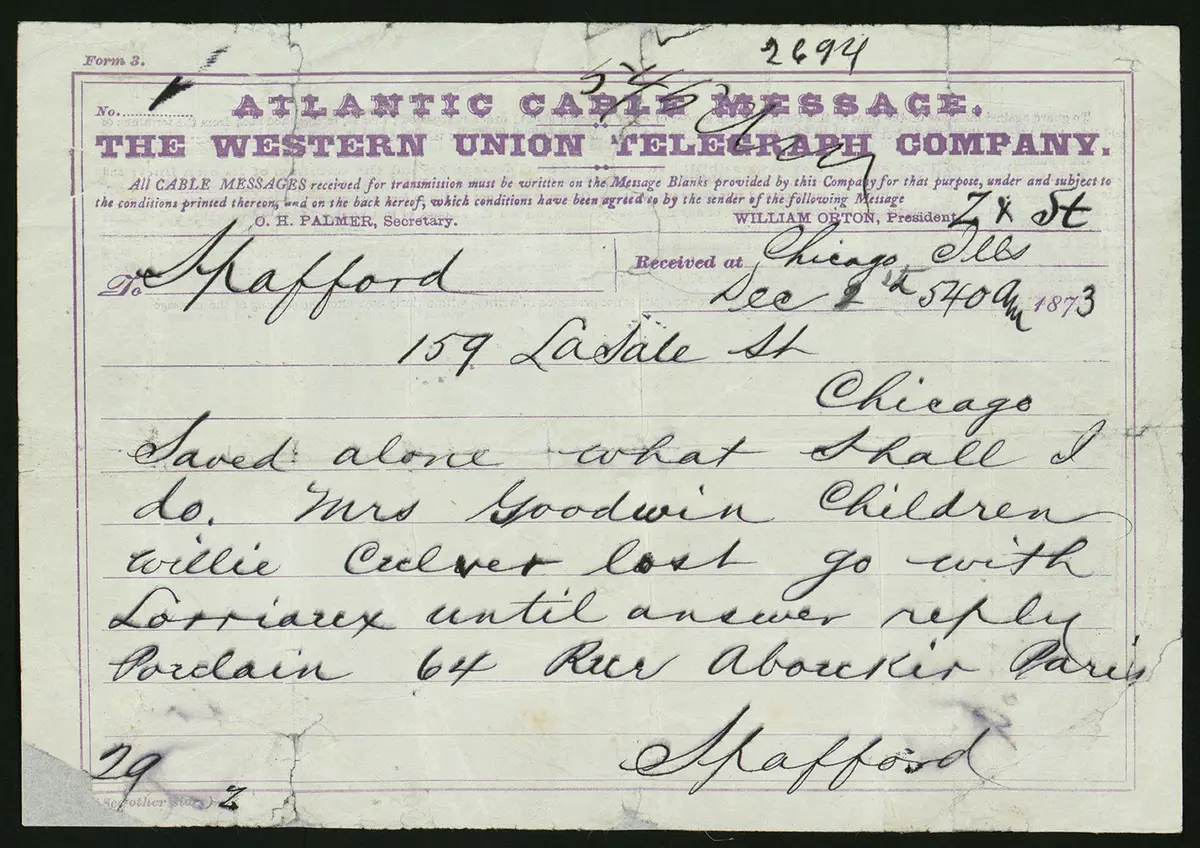 2694
Form 3.
No.
ATLANTIC CABLE MESSAGE.
THE WESTERN UNION TELEGRAPH COMPANY.
All CABLE MESSAGES received for transmission must be written on the Message Blanks provided by this Company for that purpose, under and subject to
the conditions printed thereon, and on the back hereof, which conditions have been agreed to by the sender of the following Message
O. H. PALMER, Secretary. WILLIAM ORTON, President
To Spafford Received at Chicago Ills
Dec 540 am 1873
159 LaSale St
Chicago
Saved alone what shall I
do. Mrs Goodwin Children
Willie Culver lost go with
Lorriaux until answer reply
Porclain 64 Rue Aboukir Paris
Spafford
29
(See other side.) 2